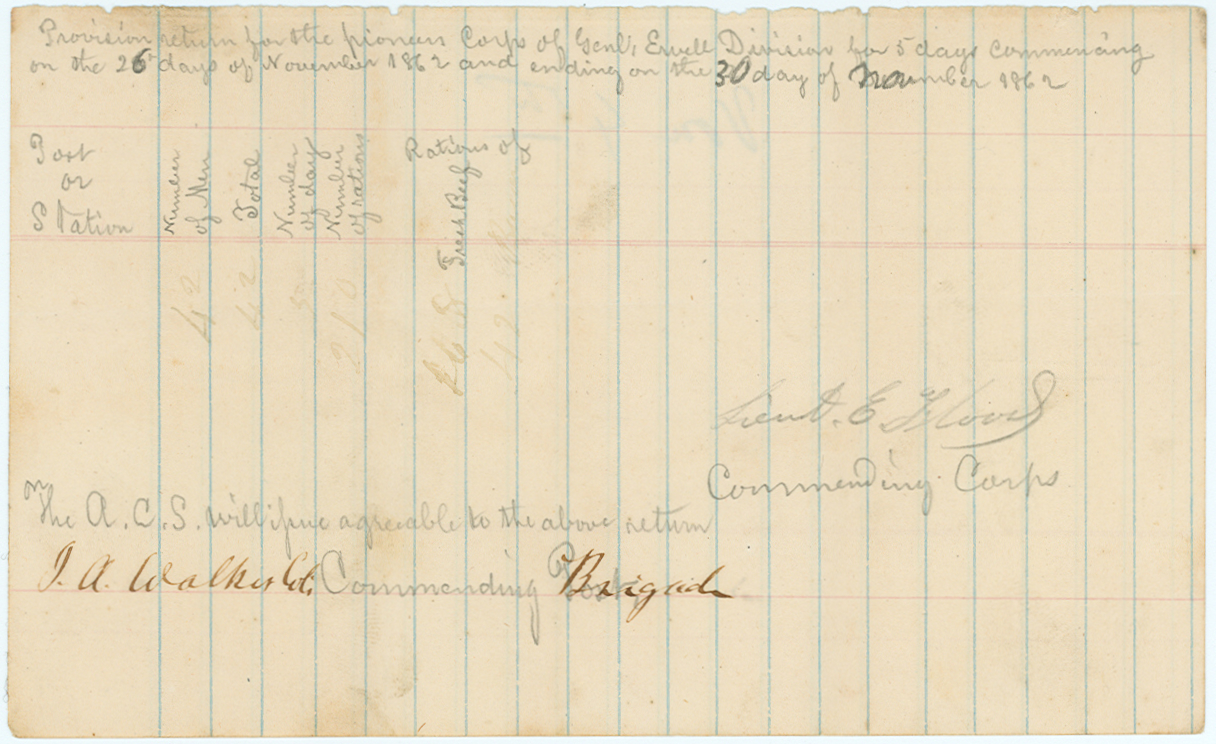 Provision return for the pioneers Corps of Genl,s Ewell Division for 5 days commencing
on the 26 days of November 1862 and ending on the 30 day of November 1862
Post
or
Station
Number
of Men
Total
Number
of day
Number
of rations
Rations of
Fresh Beef
42
42
5
210
42
Lieut. E
Commending Corps
The A. C. S. will issue agreeable to the above return
J. A. Walker Col. Commending Brigade